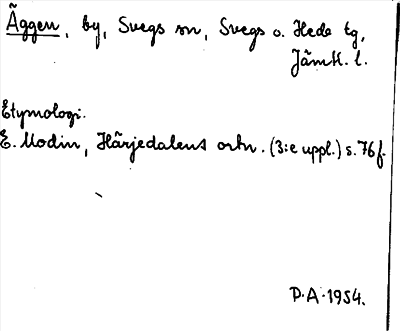 Äggen, by, Svegs sn, Svegs o. Hede tg,
Jämtl. l.
Etymologi.
E. Modin, Härjedalens ortn. (3:e uppl.) s. 76 f.
P.A. 1954.